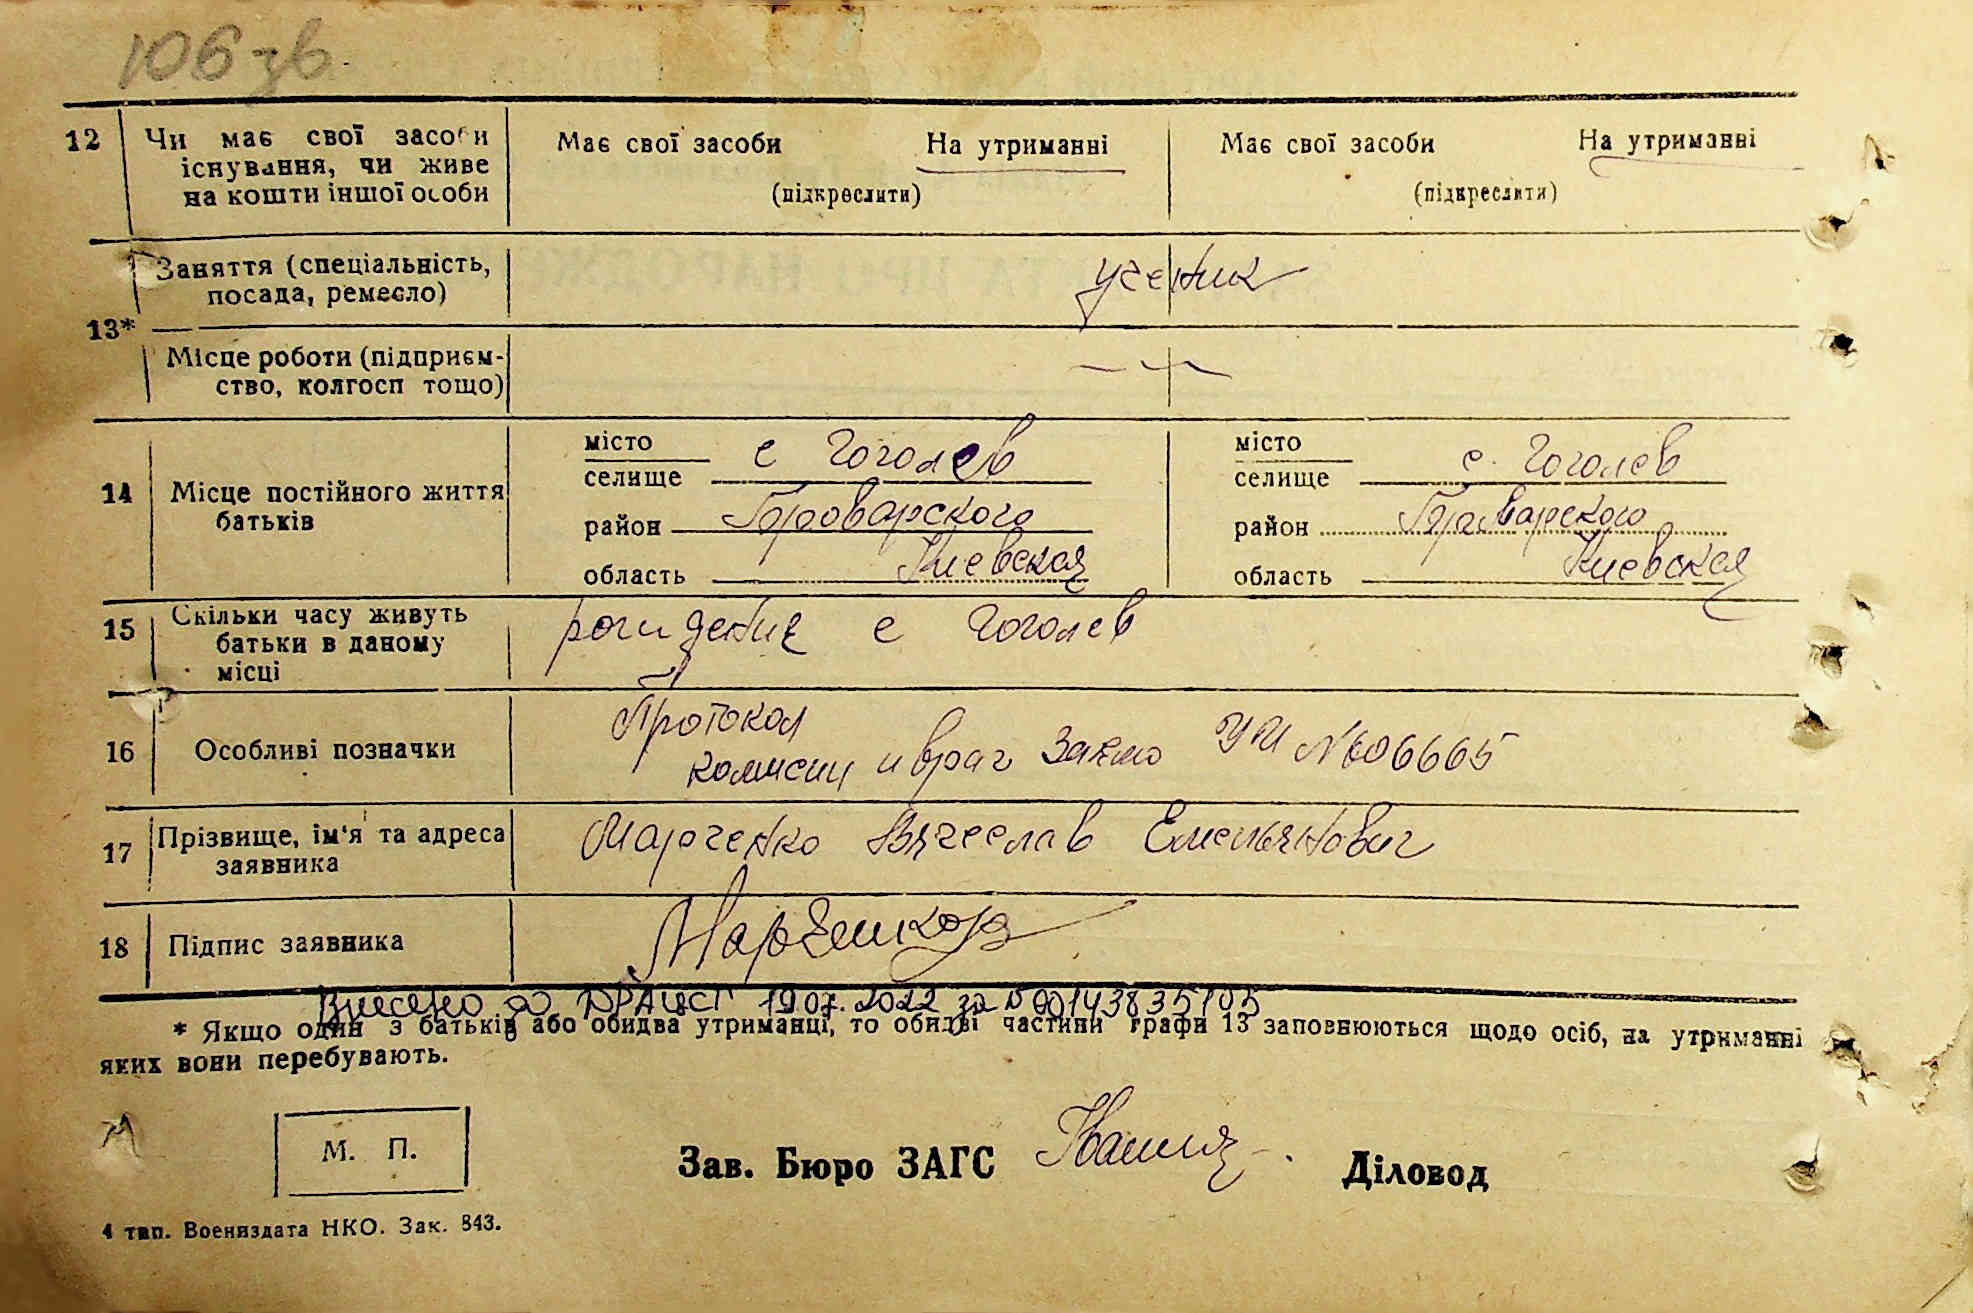 106 зв.
12 Чи має свої засоби Має свої засоби На утриманні Має свої засоби На утриманні
існування, чи живе
на кошти іншої особи (підкреслити) (підкреслити)
Заняття (спеціальність, ученик
посада, ремесло)
13*
Місце роботи (підприєм-
ство, колгосп тощо)
місто с Гоголев місто с. Гоголев
селище селище
14 Місце постійного життя
батьків
район Броварского район Броварского
область Киевская область Киевская
15 Скільки часу живуть рождение с Гоголев
батьки в даному
місці
Протокол
16 Особливі позначки комисии и врач УИ №606665
17 Прізвище, ім'я та адреса Марченко Вячеслав Емельянович
заявника
18 Підпис заявника
Внесено до ДРАЦСГ 19.07.2022 за №00143835105
* Якщо один з батьків або обидва утриманці, то обидві частини графи 13 заповнюються щодо осіб, на утриманні
яких вони перебувають.
М. П.
Зав. Бюро ЗАГС Діловод
4 тип. Воениздата НКО. Зак. 843.